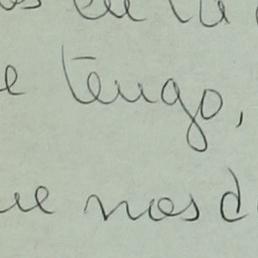 en la
e tengo,
ue nos d